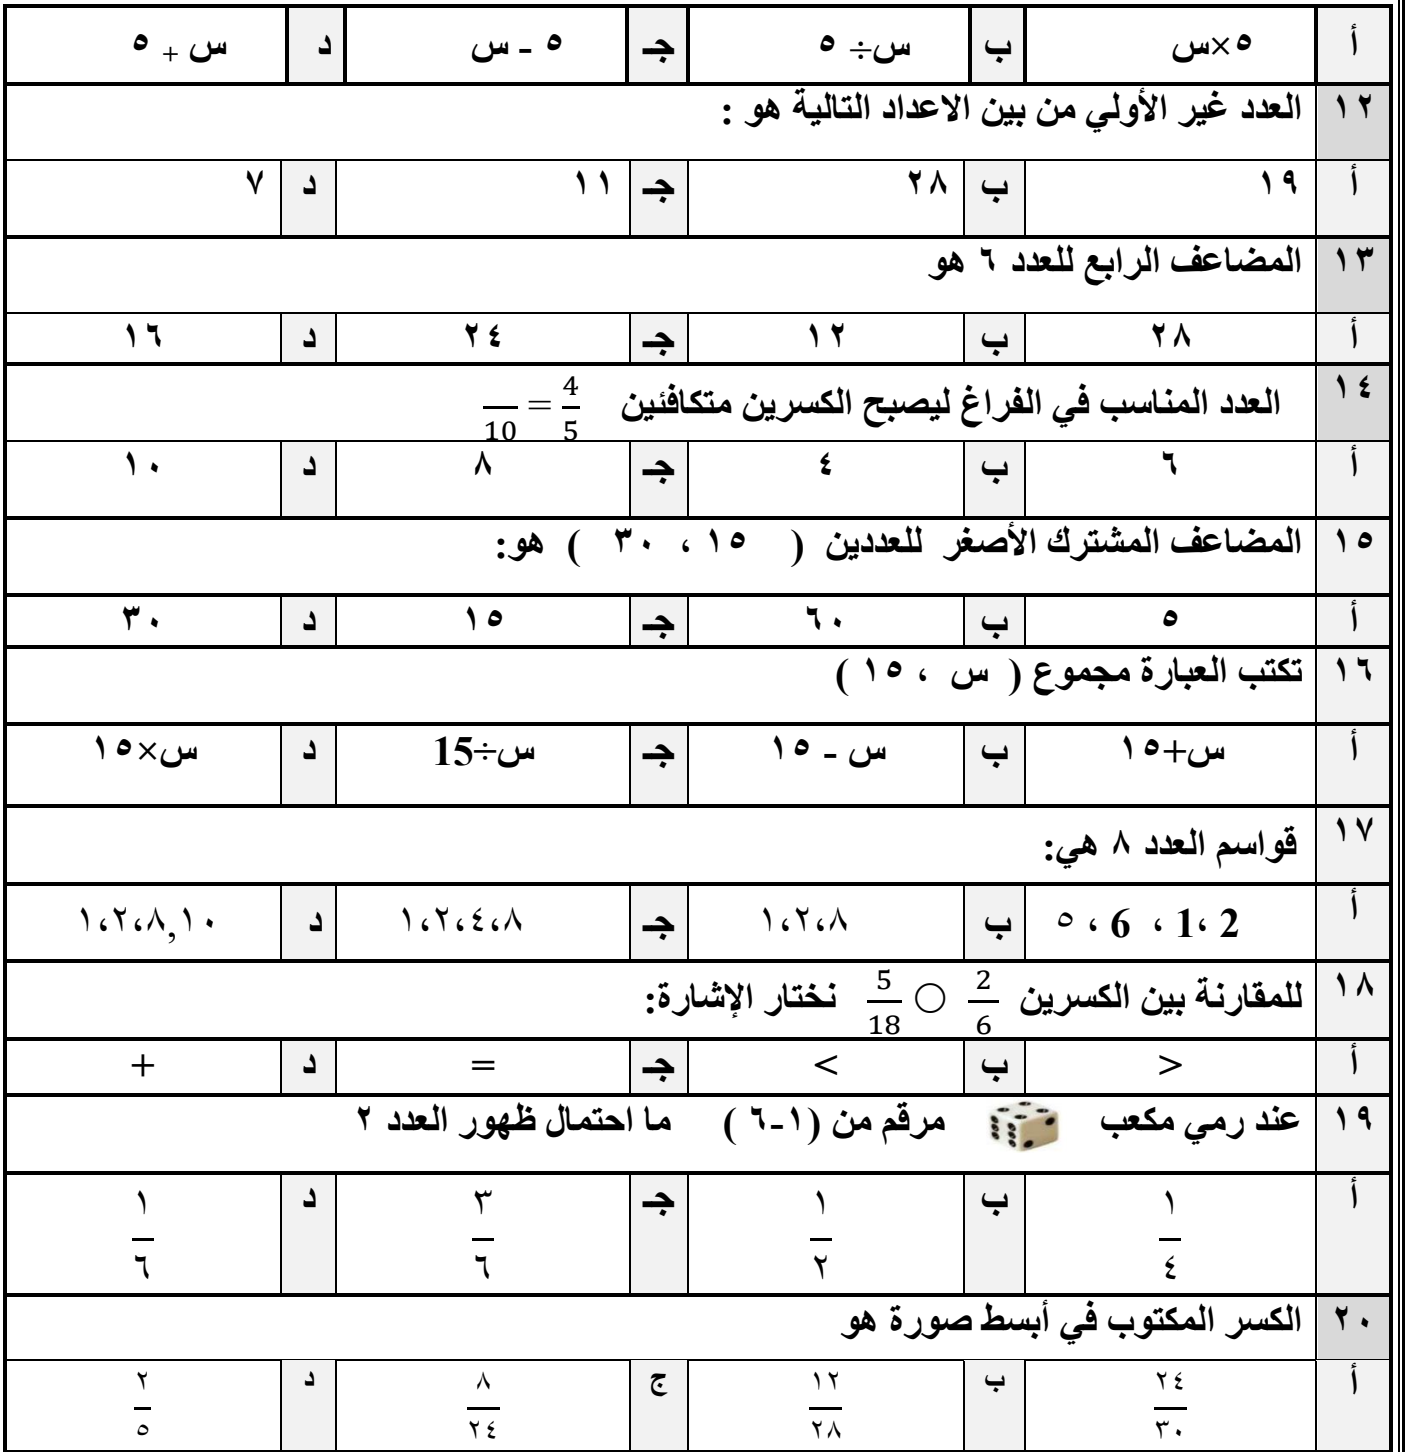 أ ٥×س ب س÷ ٥ جـ ٥ - س د س + ٥
١٢ العدد غير الأولي من بين الاعداد التالية هو :
أ ١٩ ب ٢٨ جـ ١١ د ٧
١٣ المضاعف الرابع للعدد ٦ هو
أ ٢٨ ب ١٢ جـ ٢٤ د ١٦
١٤ العدد المناسب في الفراغ ليصبح الكسرين متكافئين 4/5 = __/10
أ ٦ ب ٤ جـ ٨ د ١٠
١٥ المضاعف المشترك الأصغر للعددين ( ١٥ ، ٣٠ ) هو:
أ ٥ ب ٦٠ جـ ١٥ د ٣٠
١٦ تكتب العبارة مجموع ( س ، ١٥ )
أ س+١٥ ب س - ١٥ جـ س÷15 د س×١٥
١٧ قواسم العدد ٨ هي:
أ 2 ،1 ، 6 ، ٥ ب ١،٢،٨ جـ ١،٢،٤،٨ د ١،٢،٨,١٠
١٨ للمقارنة بين الكسرين 2/6 ○ 5/18 نختار الإشارة:
أ > ب < جـ = د +
١٩ عند رمي مكعب مرقم من (١-٦ ) ما احتمال ظهور العدد ٢
أ ١/٤ ب ١/٢ جـ ٣/٦ د ١/٦
٢٠ الكسر المكتوب في أبسط صورة هو
أ ٢٤/٣٠ ب ١٢/٢٨ ج ٨/٢٤ د ٢/٥